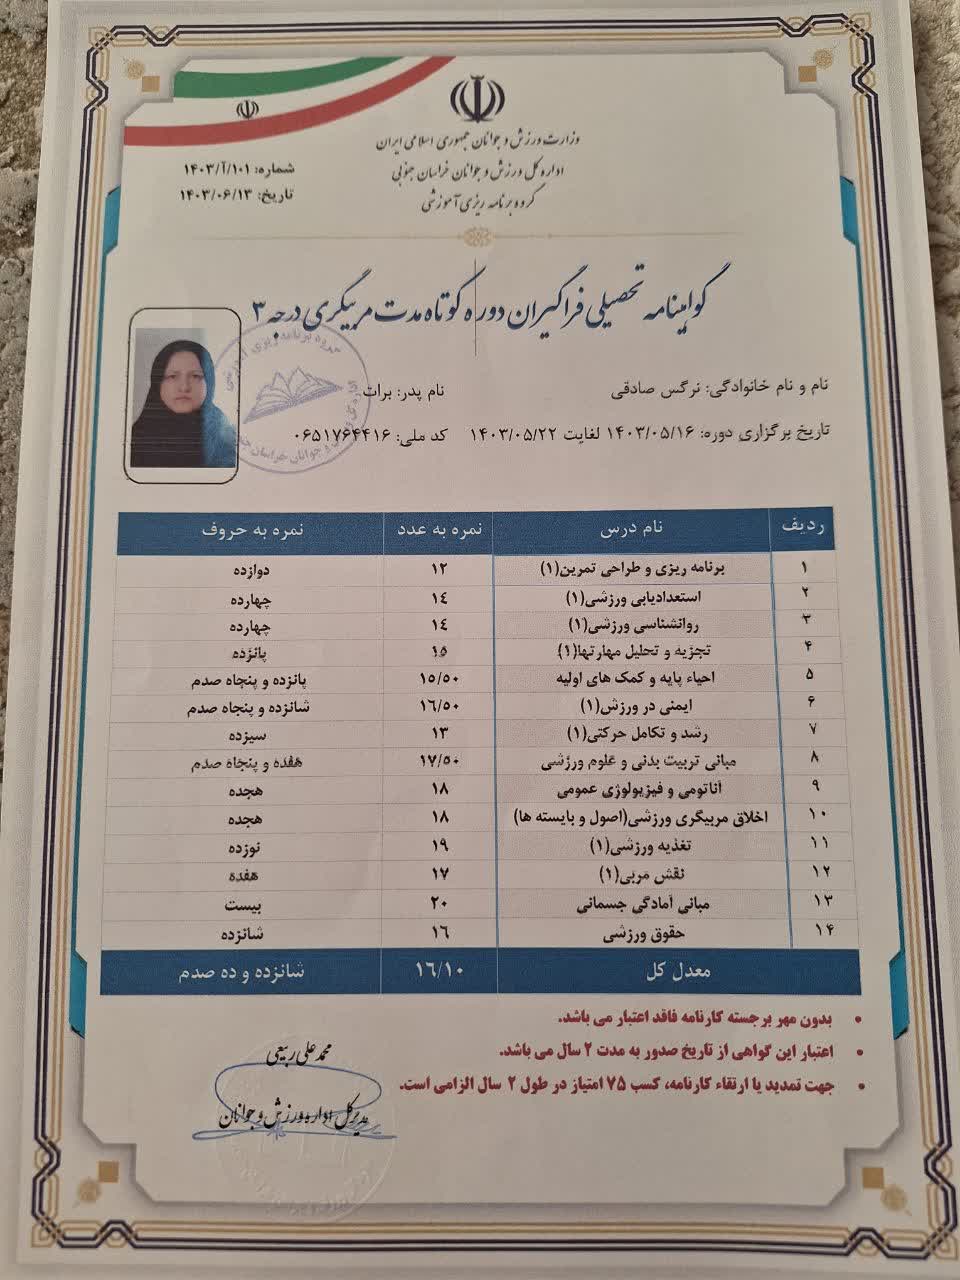 وزارت ورزش و جوانان جمهوری اسلامی ایران
اداره کل ورزش و جوانان خراسان جنوبی
گروه برنامه ریزی آموزشی
شماره: ۱۰۱/آ/۱۴۰۳
تاریخ: ۱۴۰۳/۰۶/۱۳
گواهینامه تحصیلی فراگیران دوره کوتاه مدت مربیگری درجه ۳
نام و نام خانوادگی: نرگس صادقی نام پدر: برات
تاریخ برگزاری دوره: ۱۴۰۳/۰۵/۱۶ لغایت ۱۴۰۳/۰۵/۲۲ کد ملی: ۰۶۵۱۷۶۴۴۱۶
ردیف نام درس نمره به عدد نمره به حروف
۱ برنامه ریزی و طراحی تمرین(۱) ۱۲ دوازده
۲ استعدادیابی ورزشی(۱) ۱٤ چهارده
۳ روانشناسی ورزشی(۱) ۱٤ چهارده
۴ تجزیه و تحلیل مهارتها(۱) ۱۵ پانزده
۵ احیاء پایه و کمک های اولیه ۱۵/۵۰ پانزده و پنجاه صدم
۶ ایمنی در ورزش(۱) ۱٦/۵۰ شانزده و پنجاه صدم
۷ رشد و تکامل حرکتی(۱) ۱۳ سیزده
۸ مبانی تربیت بدنی و علوم ورزشی ۱۷/۵۰ هفده و پنجاه صدم
۹ آناتومی و فیزیولوژی عمومی ۱۸ هجده
۱۰ اخلاق مربیگری ورزشی(اصول و بایسته ها) ۱۸ هجده
۱۱ تغذیه ورزشی(۱) ۱۹ نوزده
۱۲ نقش مربی(۱) ۱۷ هفده
۱۳ مبانی آمادگی جسمانی ۲۰ بیست
۱۴ حقوق ورزشی ۱٦ شانزده
معدل کل ۱٦/۱۰ شانزده و ده صدم
• بدون مهر برجسته کارنامه فاقد اعتبار می باشد.
• اعتبار این گواهی از تاریخ صدور به مدت ۲ سال می باشد.
• جهت تمدید یا ارتقاء کارنامه، کسب ۷۵ امتیاز در طول ۲ سال الزامی است.
محمد علی ربیعی
مدیرکل اداره ورزش و جوانان